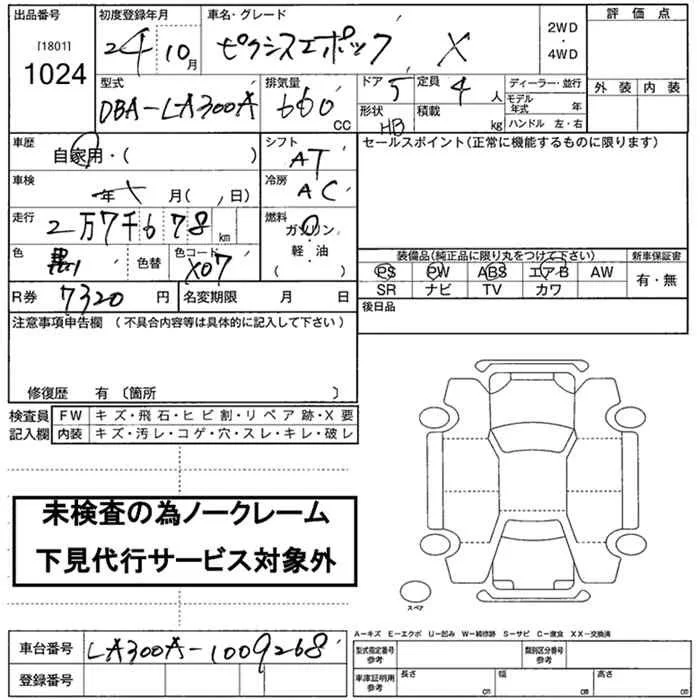 出品番号 初度登録年月 車名・グレード 評価点
[1801]
1024
24 10月 ピクシスエポック X 2WD・4WD
外装 内装
型式 排気量 ドア 定員 ディーラー・並行
DBA-LA300A 660cc 5 4人 モデル年式 年
形状 積載 ハンドル 左・右
HB kg
車歴 シフト セールスポイント(正常に機能するものに限ります)
自家用・( ) AT
車検 冷房
年 月( 日) AC
走行 燃料
2万7千678km ガソリン
色 色替 色コード 軽・油
黒 X07 ( )
装備品(純正品に限り丸をつけて下さい) 新車保証書
PS PW ABS エアB AW 有・無
SR ナビ TV カワ
R券 7320円 名変期限 月 日 後日品
注意事項申告欄 (不具合内容等は具体的に記入して下さい)
修復歴 有 〔箇所 〕
検査員 FW キズ・飛石・ヒビ割・リペア跡・X要
記入欄 内装 キズ・汚レ・コゲ・穴・スレ・キレ・破レ
未検査の為ノークレーム
下見代行サービス対象外
スペア
A-キズ E-エクボ U-凹み W-補修跡 S-サビ C-腐食 XX-交換済
車台番号 LA300A-1009268
型式指定番号 参考 類別区分番号 参考
登録番号
車庫証明用 参考 長さ cm 幅 cm 高さ cm